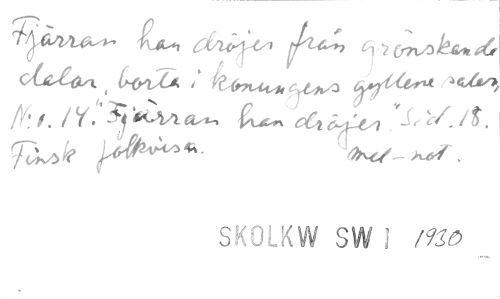 Fjärran han dröjer från grönskande
dalar, borta i konungens gyllene salar,
N:o. 14. "Fjärran han dröjer." Sid. 18.
Finsk folkvisa. mel-not.
SKOLKW SW 1 1930